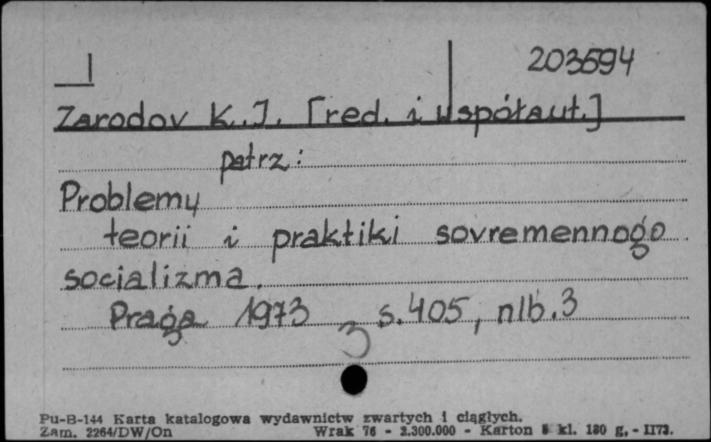 203594
Zarodov K.J. [red. i współaut.]
patrz:
Problemy
teorii i praktiki sovremennogo
socializma.
Praga 1973 s.405, nlb.3
3
Pu-B-144 Karta katalogowa wydawnictw zwartych i ciągłych.
Zam. 2264/DW/On Wrak 76 - 2.300.000 - Karton kl. 180 g. - II73.